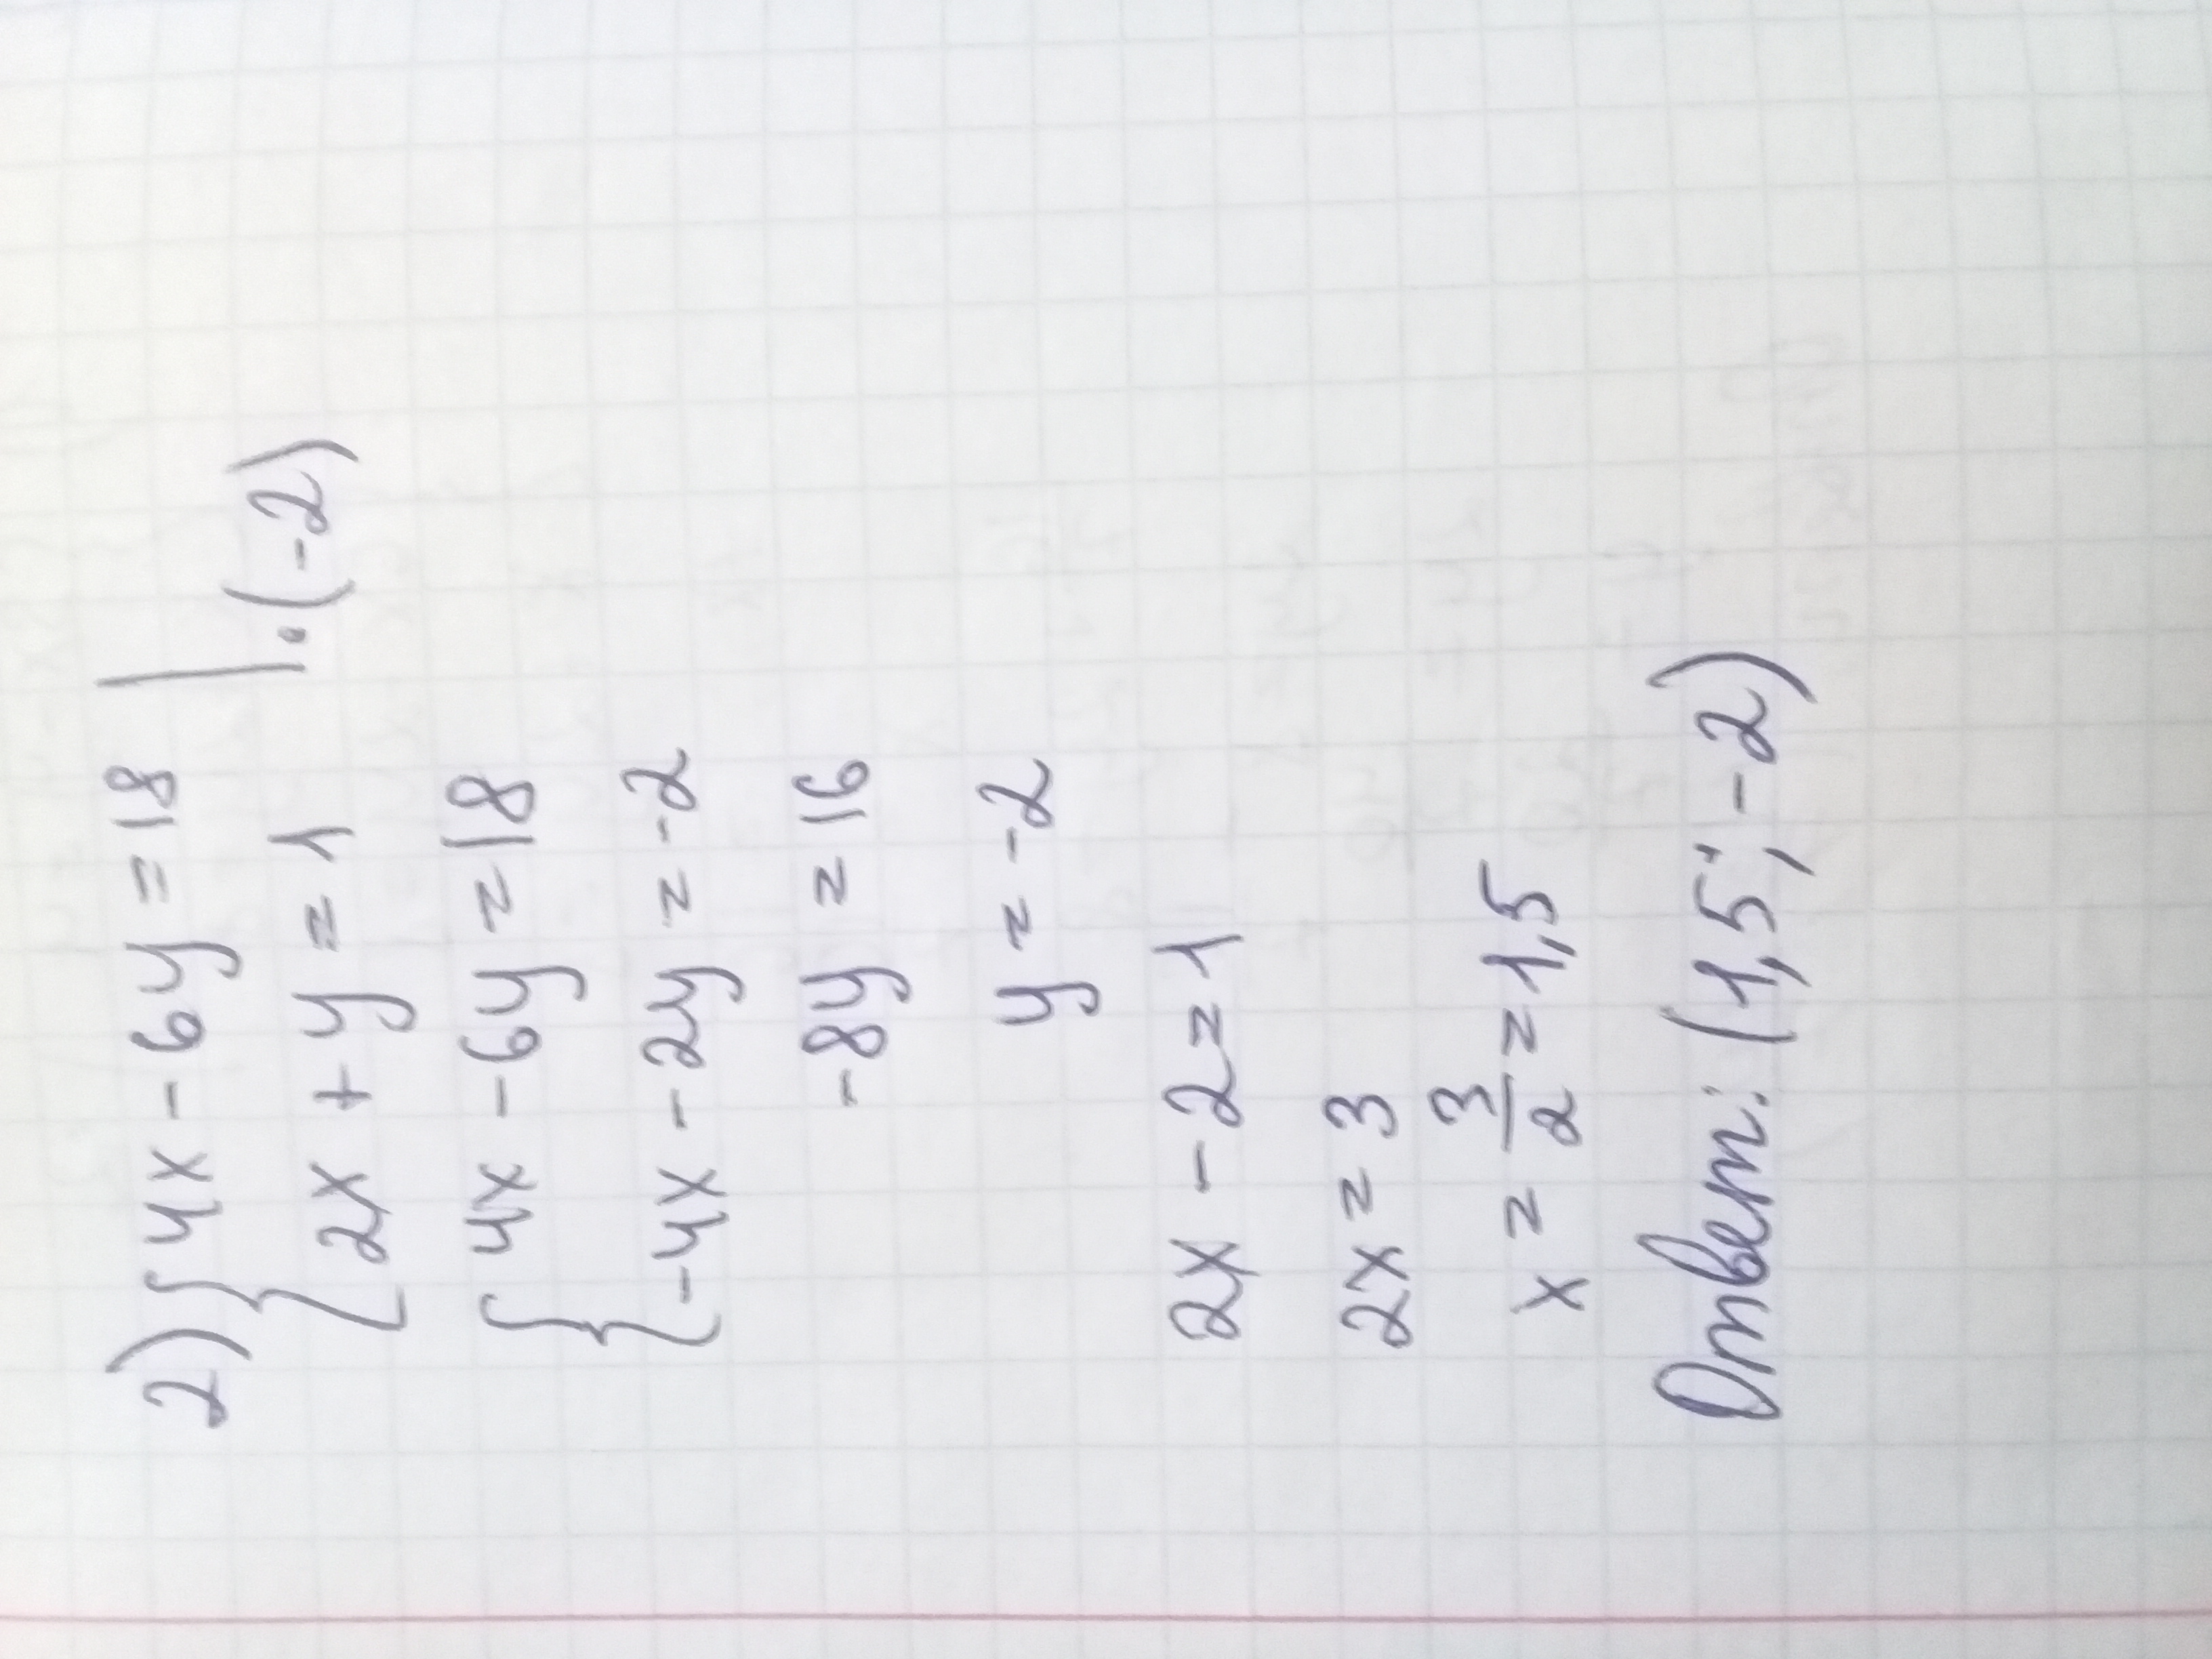 2) { 4x - 6y = 18 |
2x + y = 1 | · (-2)
{ 4x - 6y = 18
-4x - 2y = -2
-8y = 16
y = -2
2x - 2 = 1
2x = 3
x = 3/2 = 1,5
Ответ: (1,5; -2)